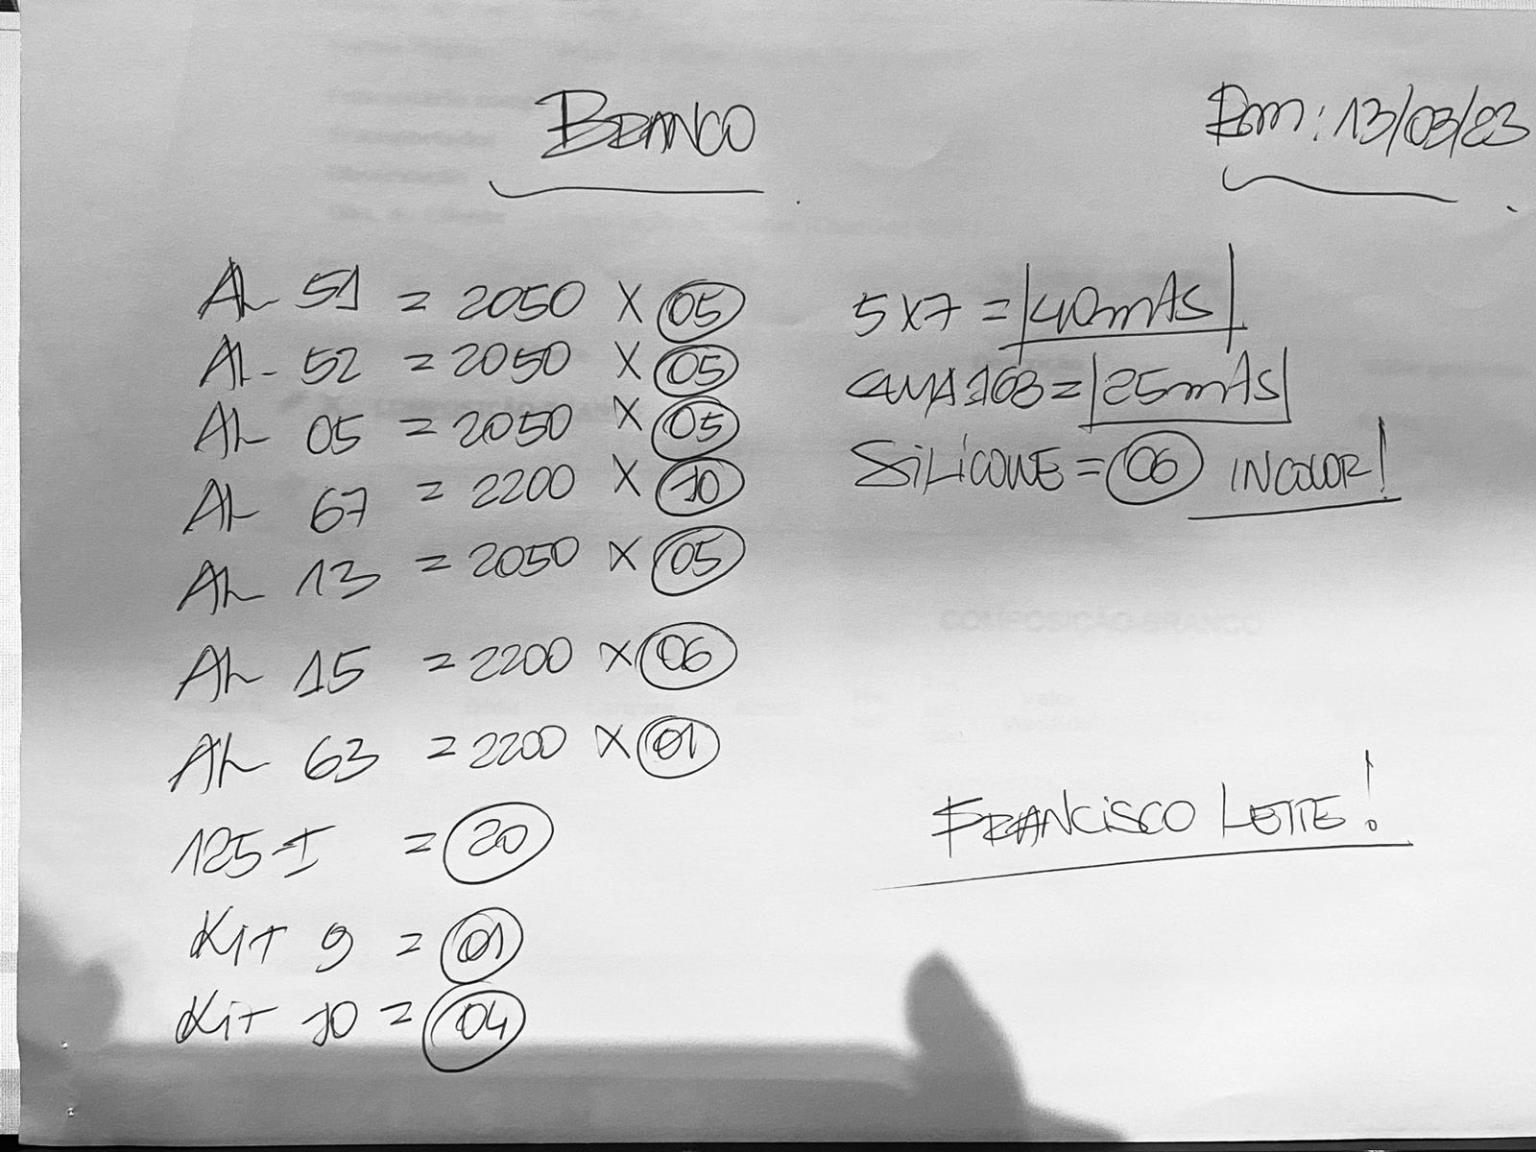 BRANCO
Bom: 13/03/23
AL 51 = 2050 X 05
AL 52 = 2050 X 05
AL 05 = 2050 X 05
AL 67 = 2200 X 10
AL 13 = 2050 X 05
AL 15 = 2200 X 06
AL 63 = 2200 X 01
125-I = 20
Kit 9 = 01
Kit 10 = 04
5X7 = 40mAS
168 = 25mAS
SILICONE = 06 INCOLOR!
FRANCISCO LEITE!
COMPOSIÇÃO BRANCO